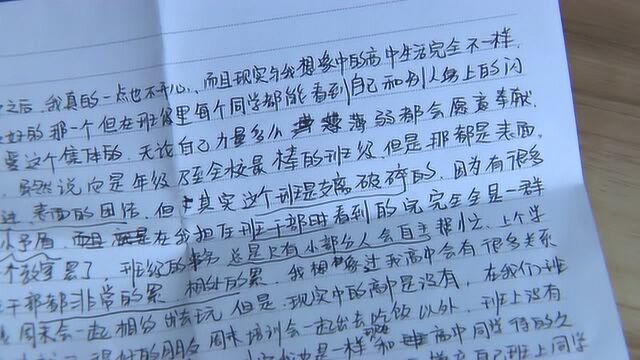 之后,我真的一点也不开心,而且现实与我想象中的高中生活完全不一样,
好的那一个但在班级里每个同学都能看到自己和别人身上的闪
这个集体的,无论自己力量多么薄弱都会愿意奉献,
虽然说它是年级乃至全校最棒的班级,但是那都是表面,
表面的团结,但其实这个班是支离破碎的,因为有很多
小矛盾,而且在我担任班干部时看到的完完全全是一群
个教室罢了,班级的 总是只有小部分人会自主报名,上个学
干部都非常的累,相处的累,我想象过我高中会有很多关系
周末会一起相约出去玩,但是,现实中的高中是没有,在我们班
周末培训会一起出去吃饭以外,班上没有
也是一样 和 高中同学待的久
自己班上同学